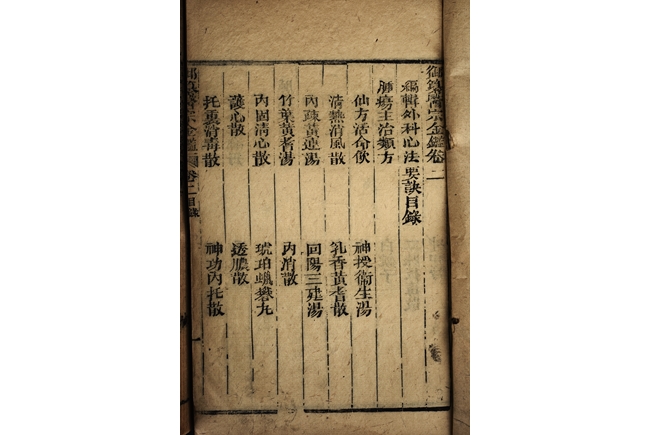 御纂醫宗金鑑卷二
編輯外科心法要訣目錄
腫瘍主治類方
仙方活命飲　神授衛生湯
清熱消風散　乳香黃耆散
內疎黃連湯　回陽三建湯
竹葉黃耆湯　內消散
內固清心散　琥珀蠟礬丸
護心散　透膿散
托裏消毒散　神功內托散
御纂醫宗金鑑　卷二目錄　一